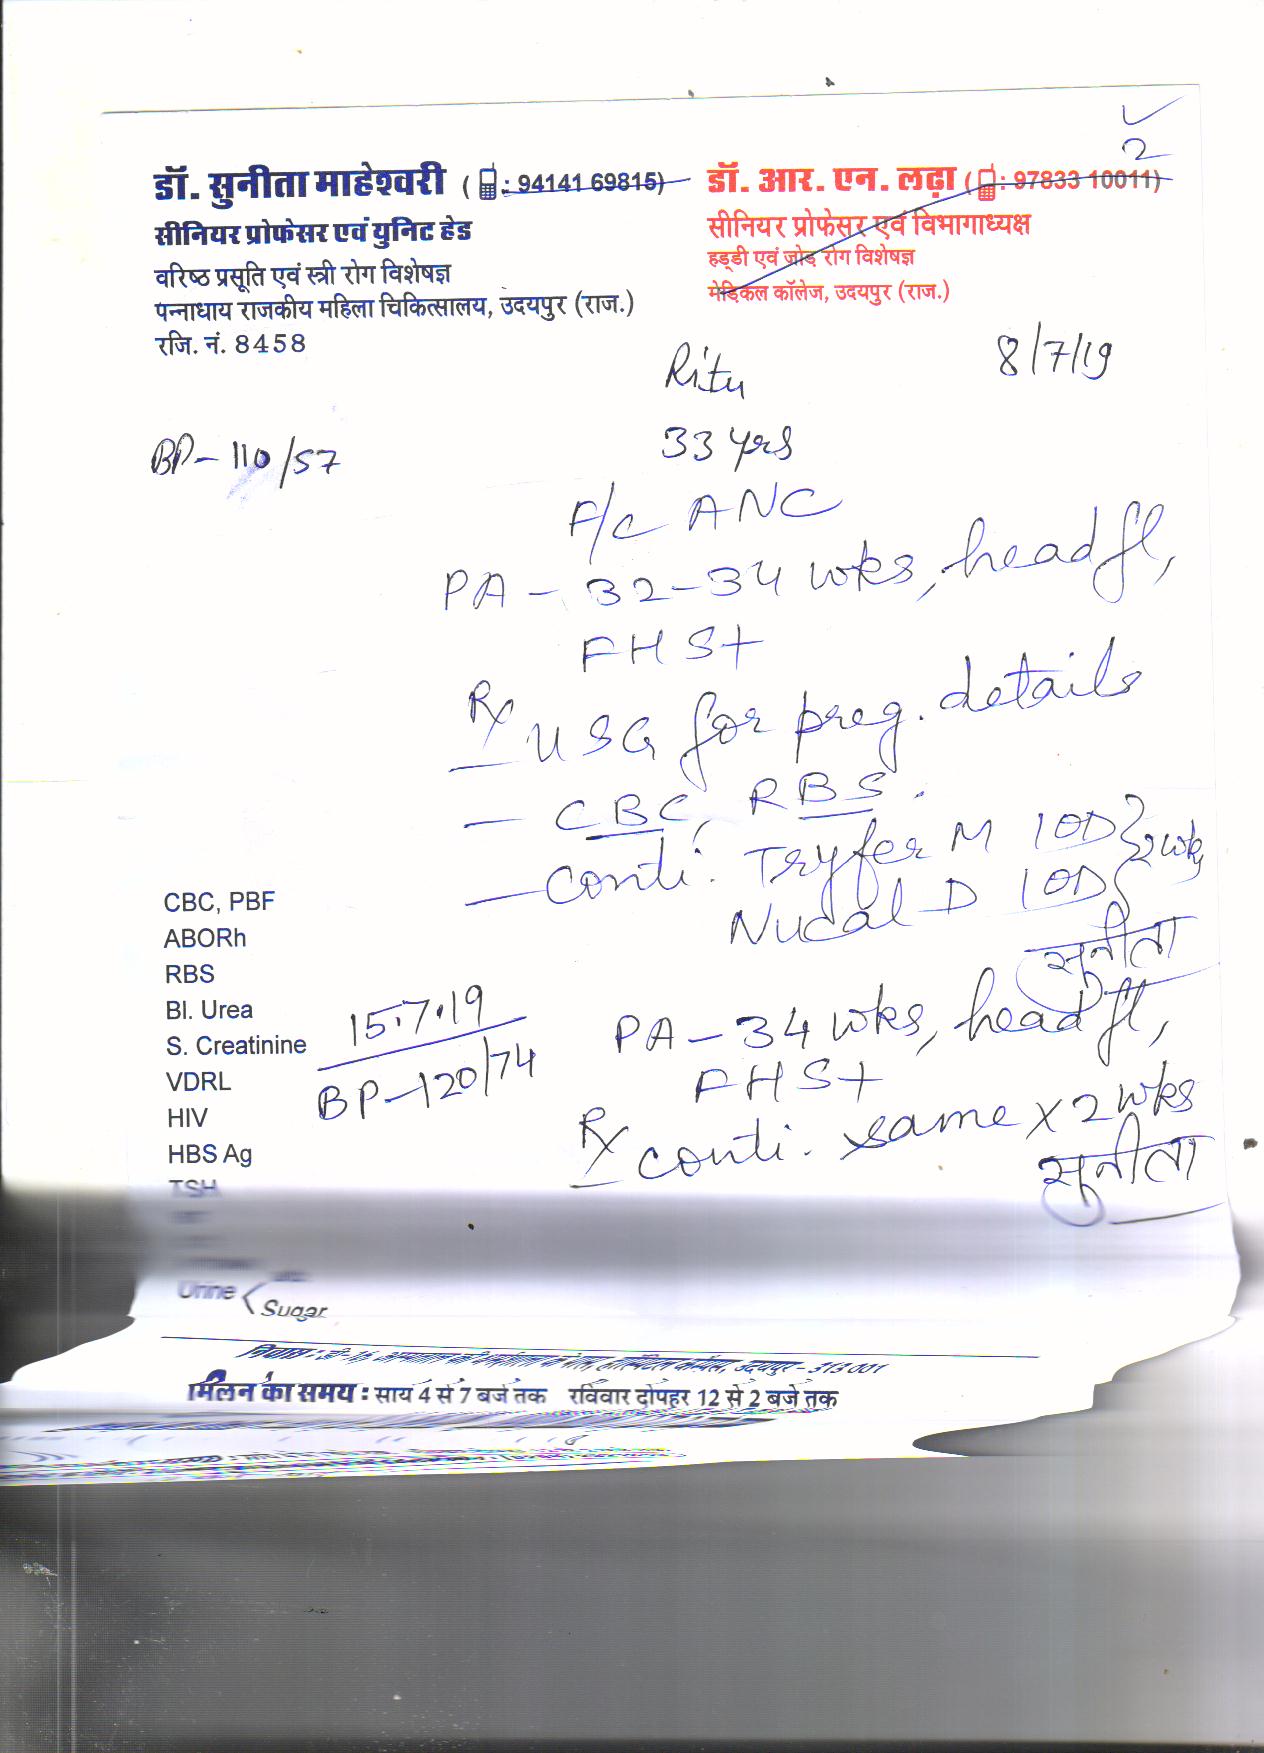 ✓
2
डॉ. सुनीता माहेश्वरी ( : 94141 69815)
सीनियर प्रोफेसर एवं युनिट हेड
वरिष्ठ प्रसूति एवं स्त्री रोग विशेषज्ञ
पन्नाधाय राजकीय महिला चिकित्सालय, उदयपुर (राज.)
रजि. नं. 8458
डॉ. आर. एन. लढ़ा ( : 97833 10011)
सीनियर प्रोफेसर एवं विभागाध्यक्ष
हड्डी एवं जोड़ रोग विशेषज्ञ
मेडिकल कॉलेज, उदयपुर (राज.)
Ritu 8/7/19
33 yrs
BP - 110/57
F/c ANC
PA - 32-34 wks, head fl,
FHS+
Rx
USG for preg. details
- CBC, RBS.
- conti. Tryfer M 1OD } 2 wks
Nucal D 1OD
सुनीता
CBC, PBF
ABORh
RBS
Bl. Urea
S. Creatinine
VDRL
HIV
HBS Ag
TSH
Urine
Sugar
15.7.19
BP - 120/74
PA - 34 wks, head fl,
FHS+
Rx conti. same x 2 wks
सुनीता
उदयपुर - 313 001
मिलने का समय : सायं 4 से 7 बजे तक रविवार दोपहर 12 से 2 बजे तक